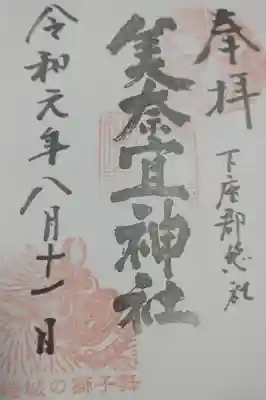 奉拝
下座郡惣社
美奈宜神社
令和元年八月十一日
の獅子舞